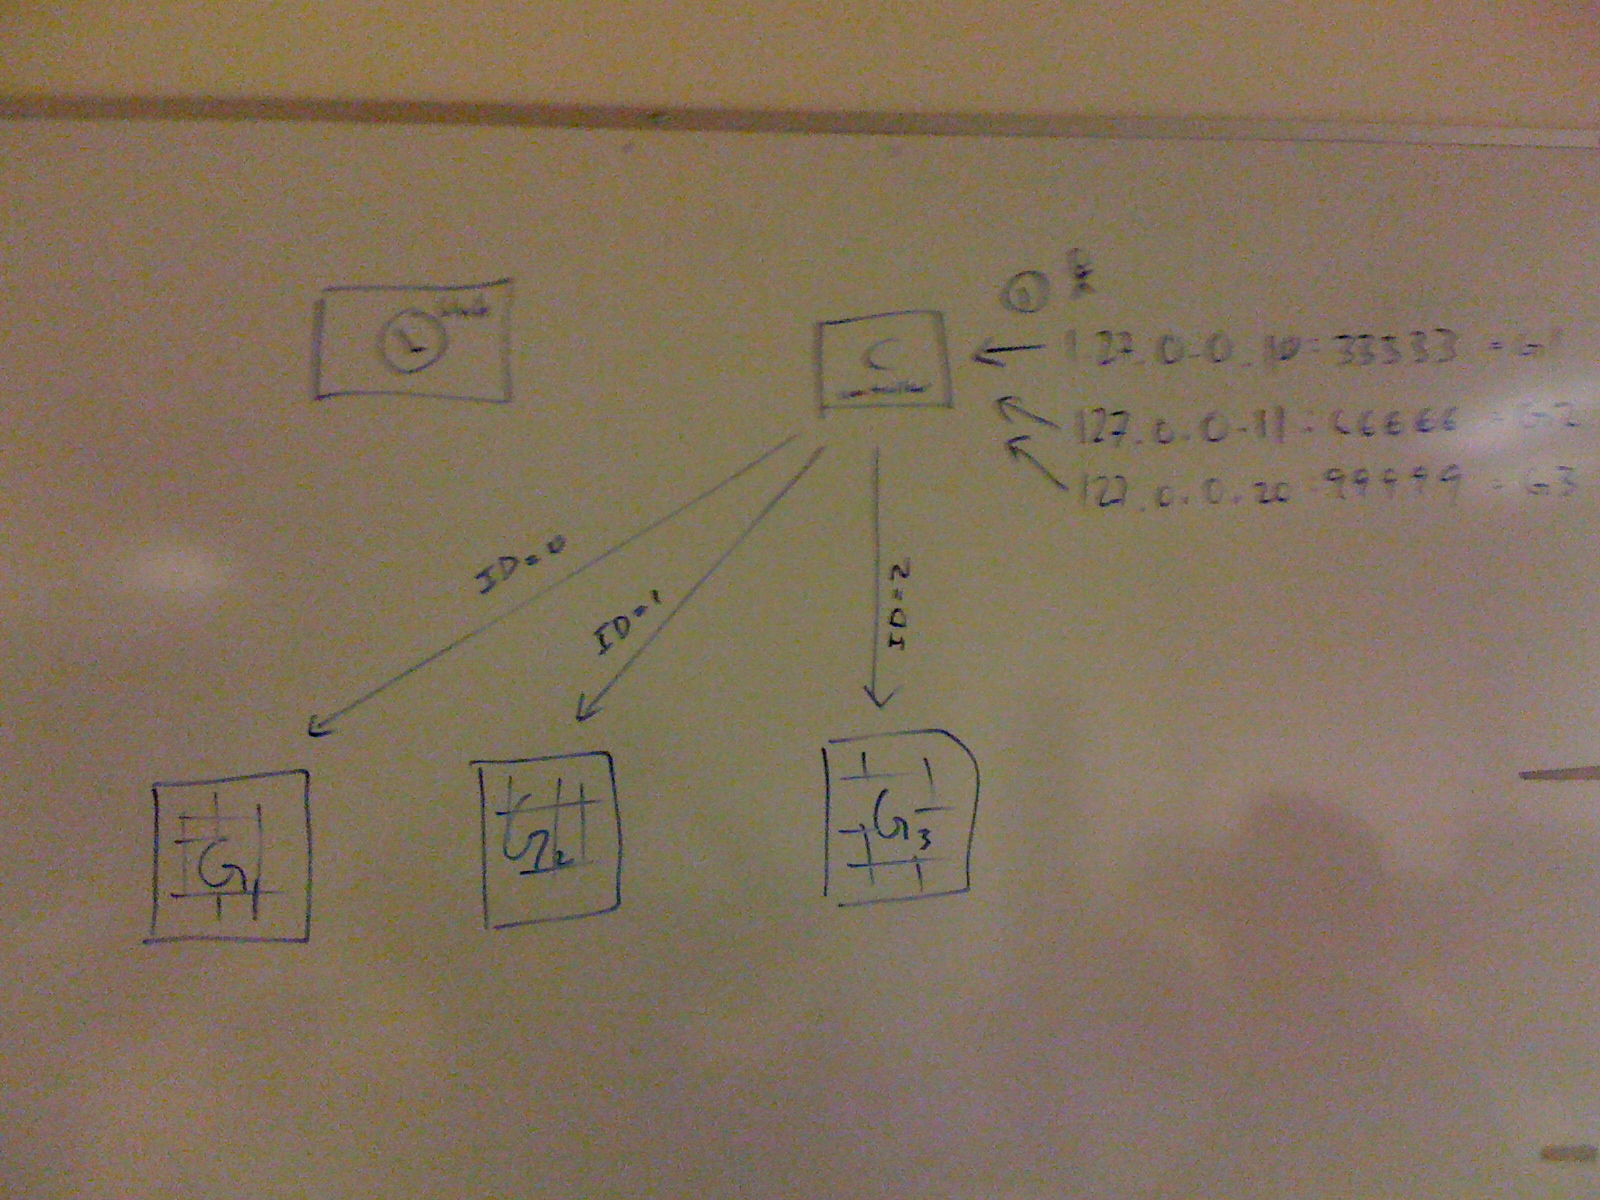 C
controller
127.0.0.10:33333 = G1
127.0.0.11:66666 = G2
127.0.0.20:99999 = G3
ID=0
ID=1
ID=2
G1
G2
G3